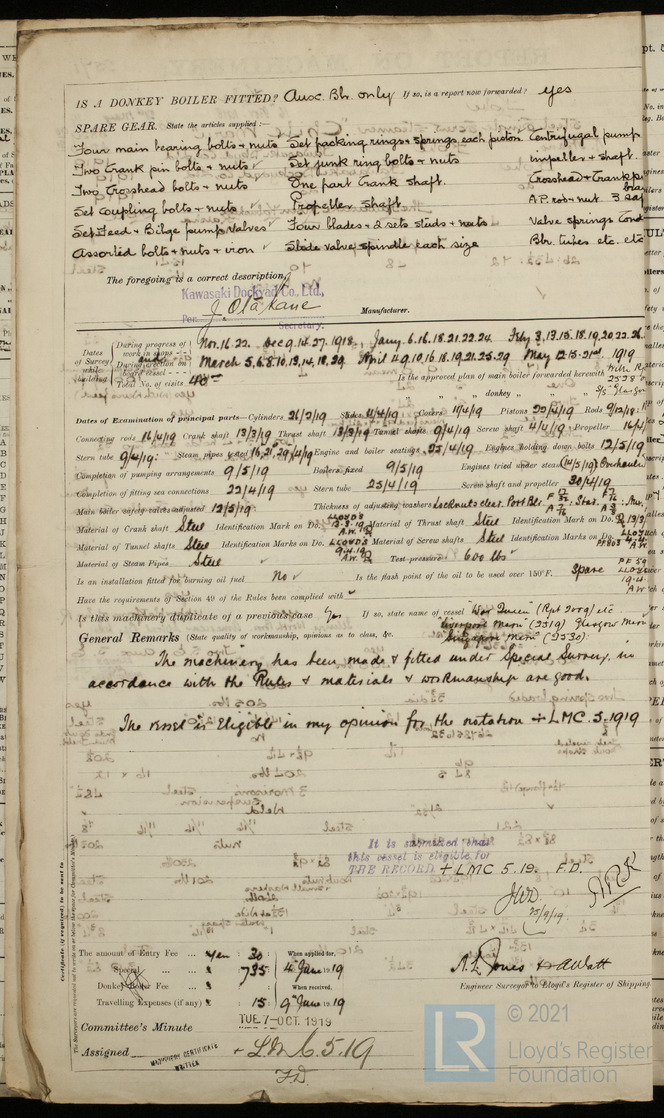 IS A DONKEY BOILER FITTED? Aux. Blr. only If so, is a report now forwarded? yes
SPARE GEAR. State the articles supplied:—
Four main bearing bolts + nuts Set packing rings + springs each piston Centrifugal pump
Two Crank pin bolts + nuts Set junk ring bolts + nuts impeller + shaft.
Two Crosshead bolts + nuts One part Crank shaft. Crosshead + Crank p
Set Coupling bolts + nuts Propeller shaft A.P. rod + nut.
Set Feed + Bilge pump valves Four blades + 2 sets studs + nuts Valve springs Cond
Assorted bolts + nuts + iron Slide valve spindle each size Blr. tubes etc. etc
The foregoing is a correct description,
Kawasaki Dockyard Co., Ltd.,
Per Manufacturer.
Secretary.
Dates of Survey while building
During progress of work in shops - - Nov. 16. 22. Dec 9. 14. 27. 1918. Jany. 6. 16. 18. 21. 22. 24. Feby 3. 13. 15. 18. 19. 20. 22. 26.
During erection on board vessel - - - March 5. 6. 8. 10. 13. 14. 18. 29. April 4. 9. 10. 16. 18. 19. 21. 25. 29 May 12. 15. 21st. 1919
Total No. of visits 40 Is the approved plan of main boiler forwarded herewith
" " " donkey " "
Dates of Examination of principal parts—Cylinders 21/2/19 Slides 11/4/19 Covers 11/4/19 Pistons 22/4/19 Rods
Connecting rods 16/4/19 Crank shaft 13/3/19 Thrust shaft 13/3/19 Tunnel shafts 9/4/19 Screw shaft 4/4/19 Propeller 16/4
Stern tube 9/4/19. Steam pipes tested Engine and boiler seatings 25/4/19 Engines holding down bolts 12/5/19
Completion of pumping arrangements 9/5/19 Boilers fixed 9/5/19 Engines tried under steam
Completion of fitting sea connections 22/4/19 Stern tube 25/4/19 Screw shaft and propeller 30/4/19
Main boiler safety valves adjusted 12/5/19. Thickness of adjusting washers Locknuts clear. Port Blr.
Material of Crank shaft Steel Identification Mark on Do. LLOYD'S 13.3.19 A.W. Material of Thrust shaft Steel Identification Mark on Do.
Material of Tunnel shafts Steel Identification Marks on Do. LLOYD'S 9.4.19 A.W. Material of Screw shafts Steel Identification Marks on Do.
Material of Steam Pipes Steel Test pressure 600 lbs
Is an installation fitted for burning oil fuel No Is the flash point of the oil to be used over 150°F. Spare
Have the requirements of Section 49 of the Rules been complied with
Is this machinery duplicate of a previous case Yes If so, state name of vessel War Queen (Rpt 2079) etc
Liverpool Maru (2519) Glasgow Maru
Singapore Maru (2530)
General Remarks (State quality of workmanship, opinions as to class, &c.
The machinery has been made & fitted under Special Survey, in
accordance with the Rules & materials & workmanship are good.
The vessel is Eligible in my opinion for the notation + LMC. 5. 1919
It is submitted that
this vessel is eligible for
THE RECORD + LMC 5. 19. F.D.
Certificate (if required) to be sent to
The amount of Entry Fee ... Yen : 30 : When applied for,
Special ... £ : 735 : 4 June 1919
Donkey Boiler Fee ... £ : : When received,
Travelling Expenses (if any) £ : 15 : 9 June 1919
Engineer Surveyor to Lloyd's Register of Shipping.
Committee's Minute TUE. 7-OCT. 1919
Assigned + LMC. 5.19
MACHINERY CERTIFICATE
WRITTEN
F.D.
LR © 2021
Lloyd's Register
Foundation